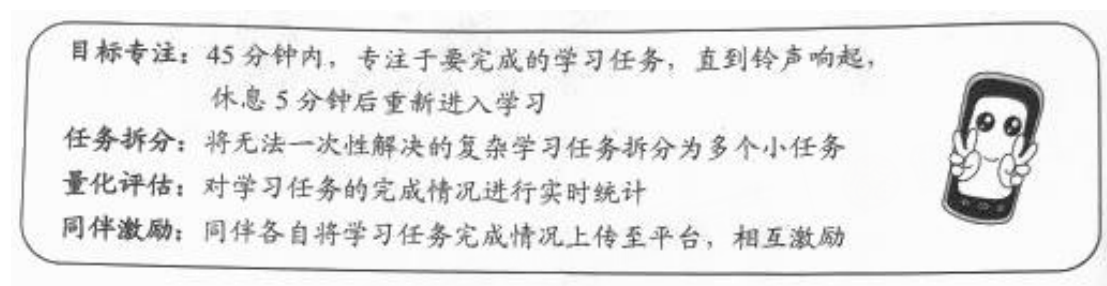 目标专注：45分钟内，专注于要完成的学习任务，直到铃声响起，
休息5分钟后重新进入学习
任务拆分：将无法一次性解决的复杂学习任务拆分为多个小任务
量化评估：对学习任务的完成情况进行实时统计
同伴激励：同伴各自将学习任务完成情况上传至平台，相互激励